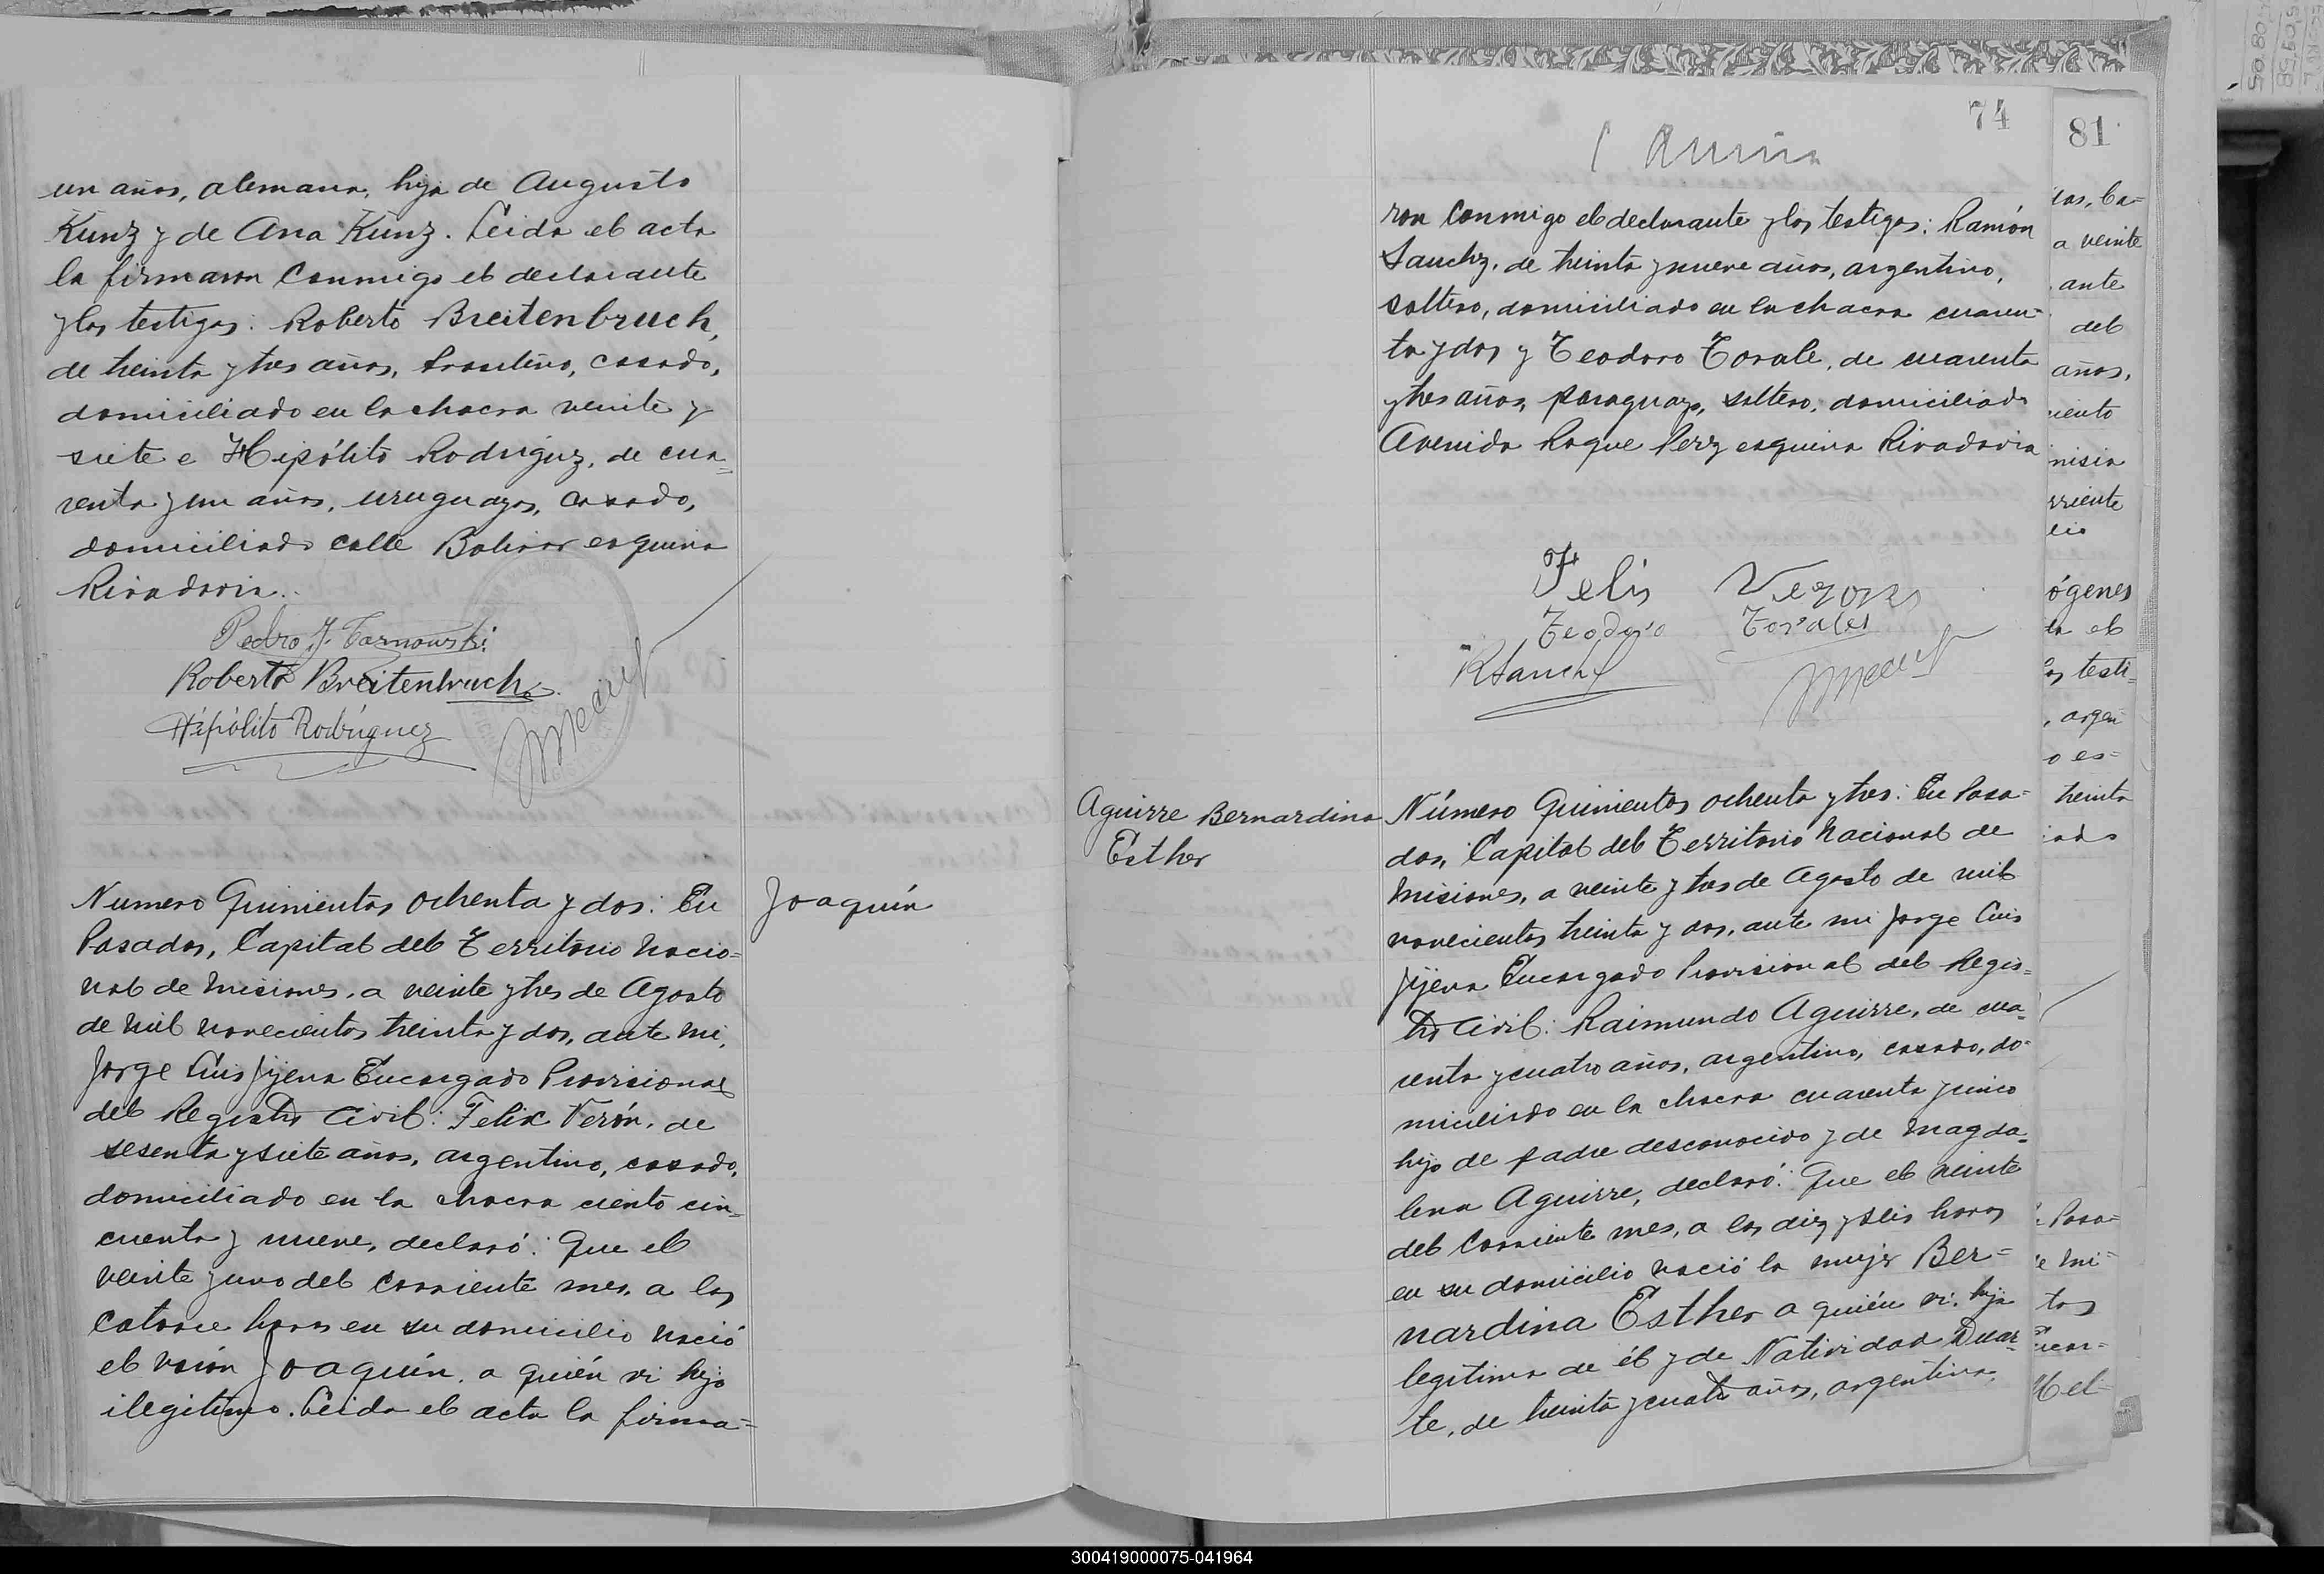 un años, alemana, hija de Augusto
Kunz y de Ana Kunz. Leida el acta
la firmaron conmigo el declarante
y los testigos: Roberto Breitenbruch,
de treinta y tres años, brasileño, casado,
domiciliado en la chacra veinte y
siete e Hipólito Rodríguez, de cua=
renta y un años, uruguayo, casado,
domiciliado calle Bolivar esquina
Rivadavia.
Pedro J. Tarnowski
Roberto Breitenbruch
Hipólito Rodríguez
Numero Quinientos ochenta y dos: En
Posadas, Capital del Territorio Nacio=
nal de Misiones, a veinte y tres de Agosto
de mil novecientos treinta y dos, ante mi,
Jorge Luis Jijena Encargado Provisional
del Registro Civil: Felix Verón, de
sesenta y siete años, argentino, casado,
domiciliado en la chacra ciento cin=
cuenta y nueve, declaró: Que el
veinte y uno del corriente mes, a las
catorce horas en su domicilio nació
el varón Joaquín, a quién vi hijo
ilegitimo. Leida el acta la firma=
Joaquín
74
ron conmigo el declarante y los testigos: Ramón
Sanchez, de treinta y nueve años, argentino,
soltero, domiciliado en la chacra cuaren=
ta y dos y Teodoro Torale, de cuarenta
y tres años, paraguayo, soltero, domiciliado
Avenida Roque Perez esquina Rivadavia
Felis
Teodoro Torales
RSanchez
Aguirre Bernardina
Esther
Número Quinientos ochenta y tres: En Posa=
das, Capital del Territorio Nacional de
Misiones, a veinte y tres de Agosto de mil
novecientos treinta y dos, ante mi Jorge Luis
Jijena Encargado Provisional del Regis=
tro Civil: Raimundo Aguirre, de cua=
renta y cuatro años, argentino, casado, do=
miciliado en la chacra cuarenta y cinco
hijo de padre desconocido y de Magda=
lena Aguirre, declaró: Que el veinte
del corriente mes, a las diez y seis horas
en su domicilio nació la mujer Ber=
nardina Esther a quién vi, hija
legitima de él y de Natividad Duar=
te, de treinta y cuatro años, argentina,
81
a veinte
ante
del
años,
rriente
ógenes
testi=
o es=
treinta
Posa=
e Mi=
300419000075-041964